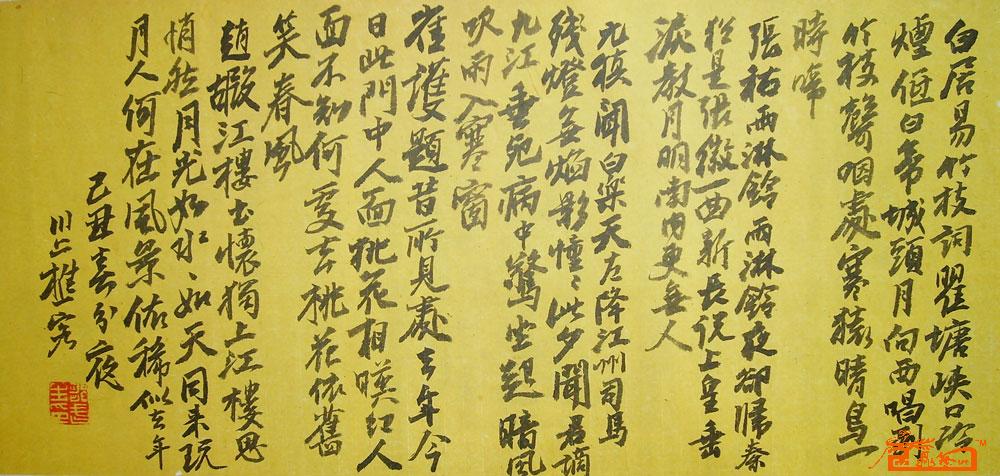 白居易竹枝词瞿塘峡口冷
煙低白帝城頭月向西唱到
竹枝聲咽處寒猿晴鳥一
時啼
張祜雨淋鈴雨淋鈴夜却歸秦
猶是張徽一曲新長説上皇垂
淚教月明南内更無人
元稹聞白樂天左降江州司馬
殘燈無焰影憧〻此夕聞君謫
九江垂死病中驚坐起暗風
吹雨入寒窗
崔護題昔所見處去年今
日此門中人面桃花相暎紅人
面不知何處去桃花依舊
笑春風
趙嘏江樓書懷獨上江樓思
悄然月光如水〻如天同來玩
月人何在風景依稀似去年
己丑春分夜
川上樵客